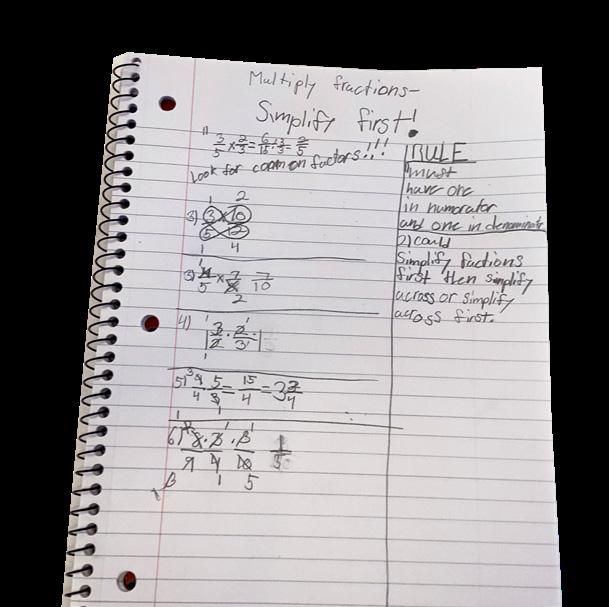 Multiply fractions-
Simplify first!
1) 3/5 x 2/3 = 6/15 ÷ 3/3 = 2/5
Look for common factors!!!
1 2
3) 3 x 10
5 12
1 4
3) 4/5 x 7/8 7/10
2
4) 3/2 · 2/3 =
5) 9/4 · 5/3 = 15/4 = 3 3/4
6) 8/9 · 3/4 · 3/10 1/5
3 1 5
RULE
1) must
have one
in numorator
and one in denominator
2) could
Simplify factions
first then simplify
across or simplify
across first.